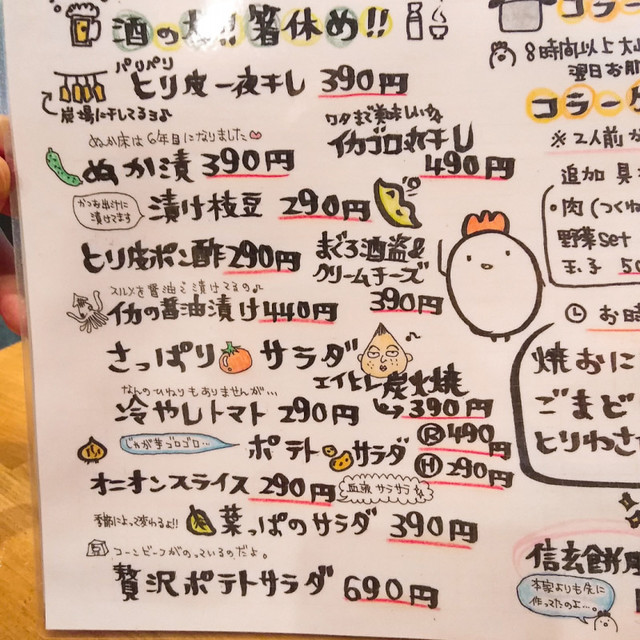 酒の友!! 箸休め!!
パリパリ
とり皮一夜干し 390円
炭場に干してるヨ♪
ぬか床は6年目になりました♡
ぬか漬 390円
ワタまで美味しいヨ
イカゴロ丸干し
490円
かつお出汁に
漬けてます
漬け枝豆 290円
とり皮ポン酢 290円
まぐろ酒盗&
クリームチーズ
390円
スルメを醤油で漬けてるの♪
イカの醤油漬け 440円
さっぱりサラダ
エイヒレ炭火焼
390円
なんのひねりもありませんが…
冷やしトマト 290円
じゃが芋ゴロゴロ…
ポテトサラダ
Ⓡ490円
Ⓗ290円
オニオンスライス 290円
血液サラサラ
季節によって変わるよ!!
葉っぱのサラダ 390円
コーンビーフがのっているのだよ。
贅沢ポテトサラダ 690円
コラー
8時間以上
翌日お肌
コラーゲ
※2人前か
追加 具
・肉(つくね
野菜set
玉子 50
お時
焼おに
ごまど
とりわさ
信玄餅風
本家よりも先に
作ってたのよ…